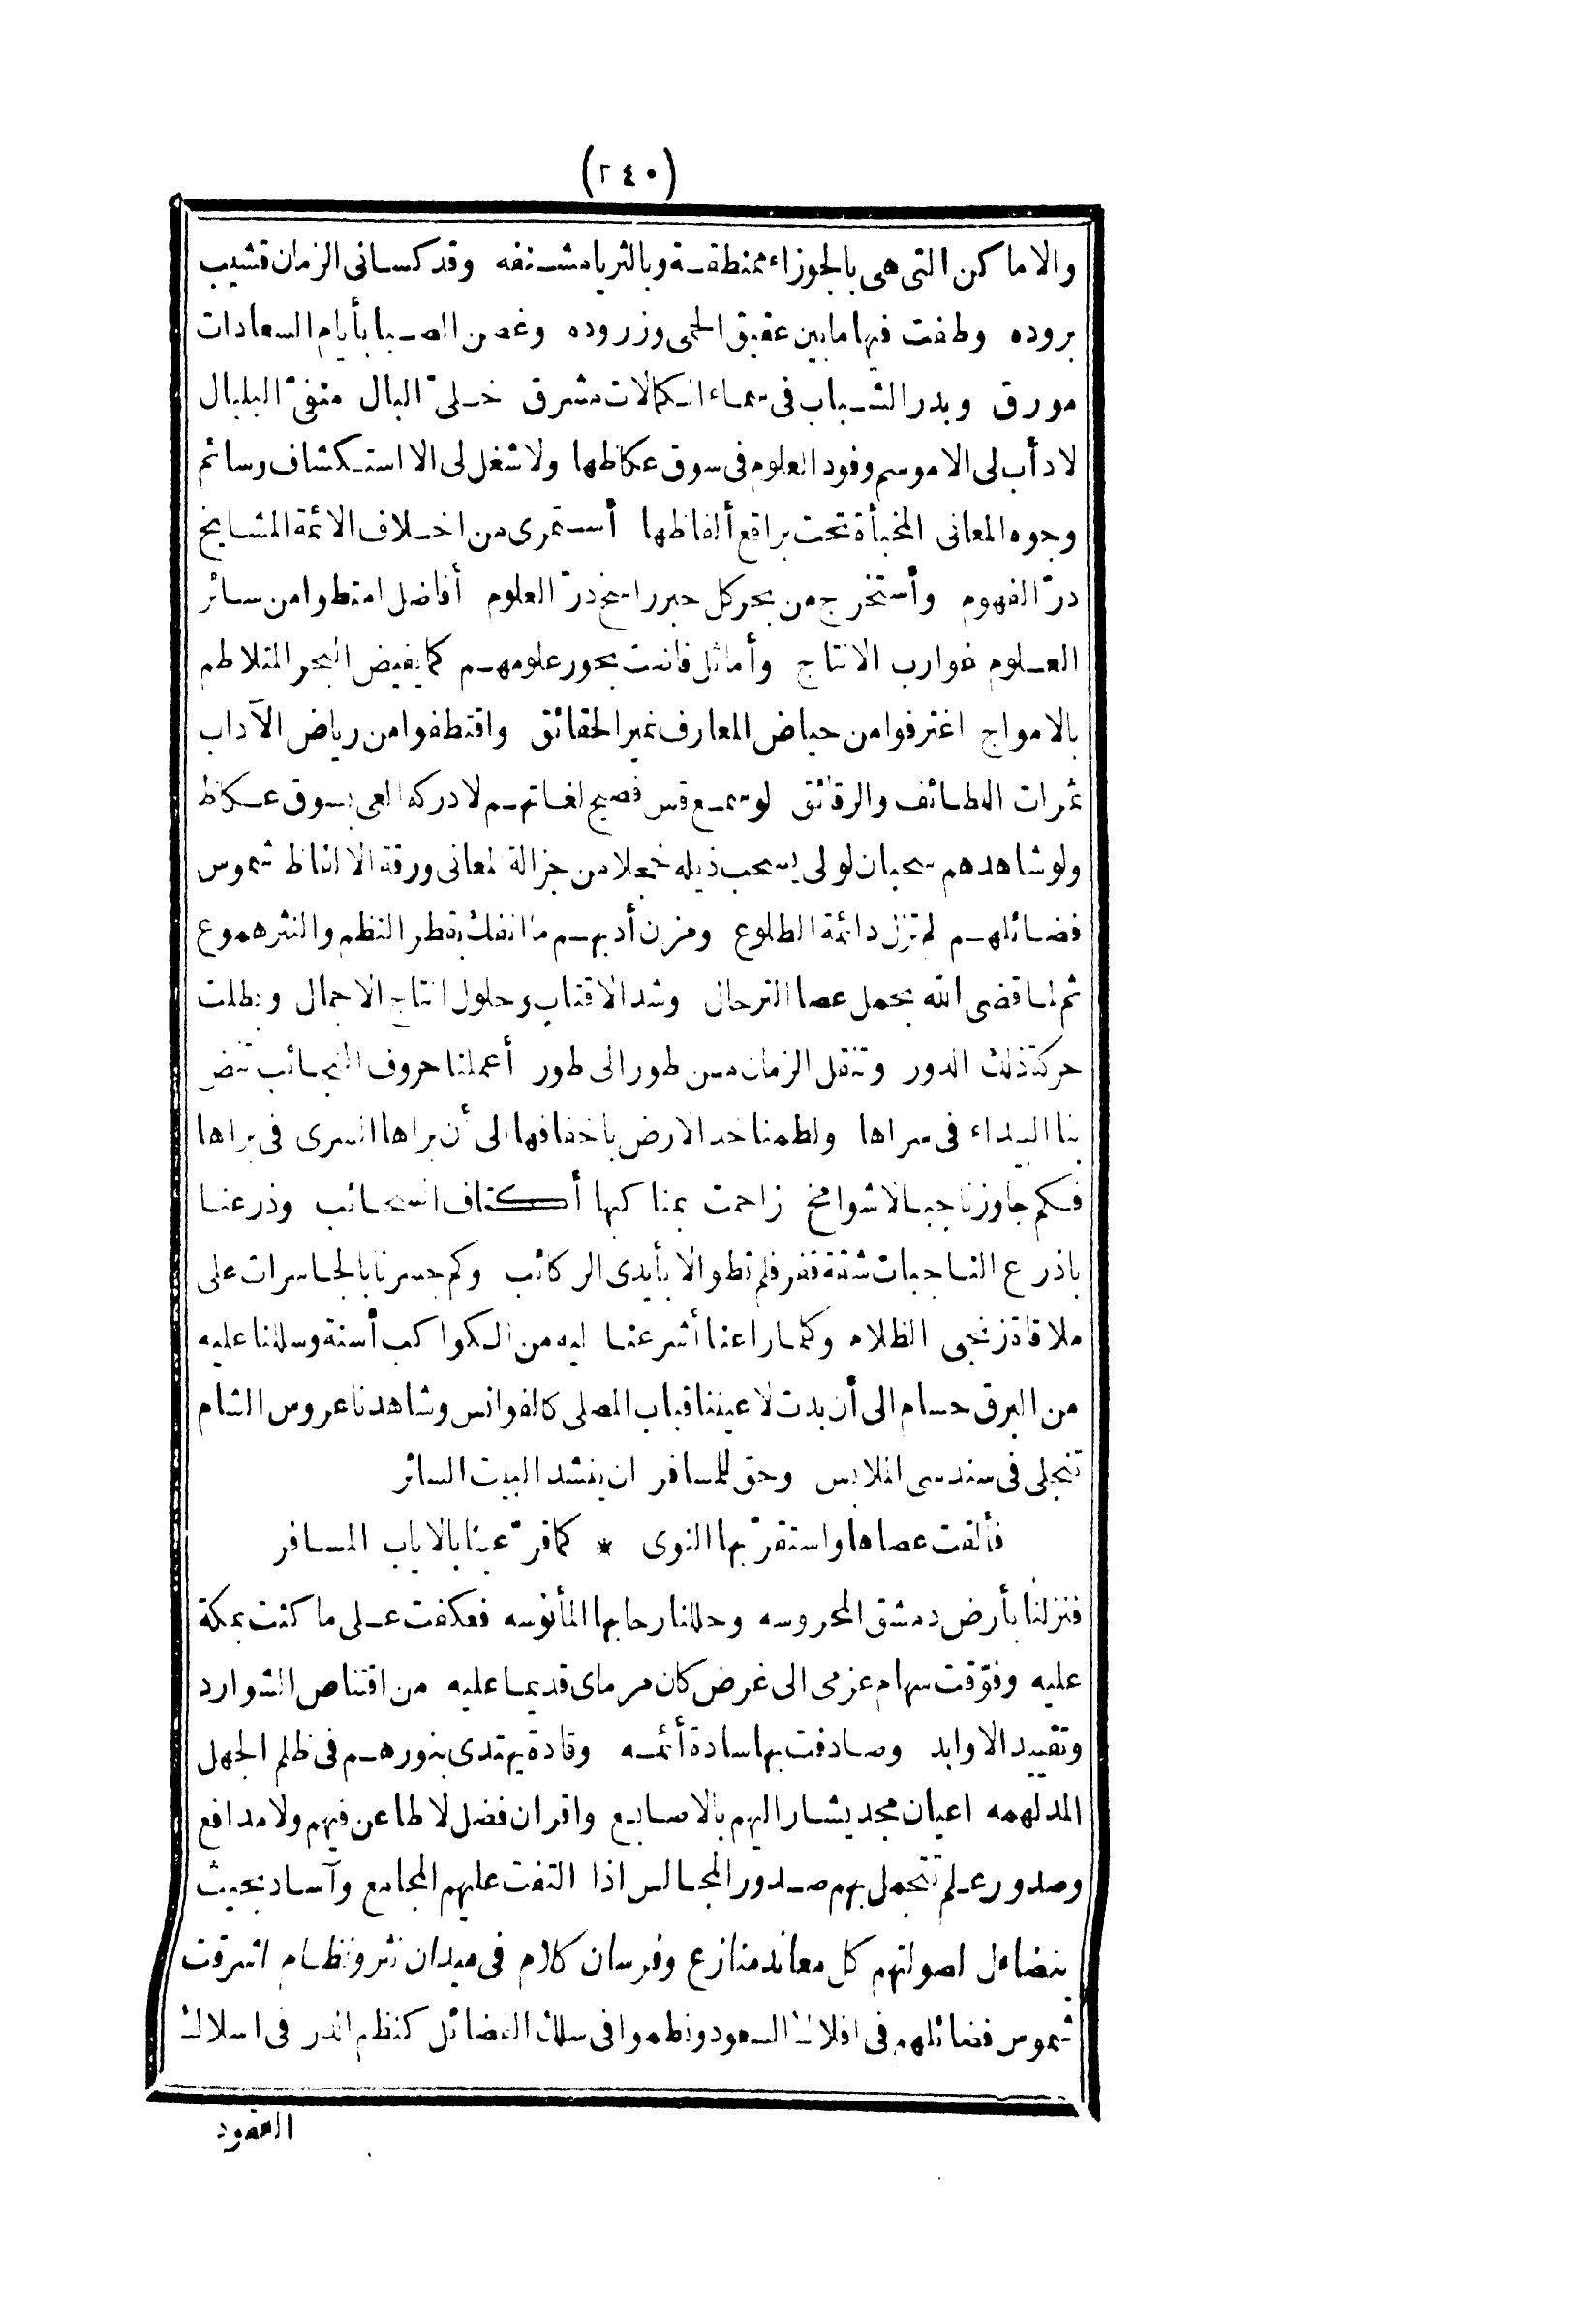 (٢٤٠)
والاماكن التى هى بالجوزاء ممنطقة وبالثريا مشنفه وقد كسانى الزمان قشيب
بروده وطفت فيها مابين عقيق الحمى وزروده وغصن الصبا بأيام السعادات
مورق وبدر الشباب فى سماء الكمالات مشرق خلىّ البال منفىّ البلبال
لا دأب لى الا موسم وفود العلوم فى سوق عكاظها ولا شغل لى الا استكشاف وسائم
وجوه المعانى المخبأة تحت براقع ألفاظها أستمرى من اخلاف الائمة المشايخ
درّ الفهوم وأستخرج من بحر كل حبر راسخ درّ العلوم أفاضل امتطوا من سائر
العلوم غوارب الانتاج وأماثل فاضت بحور علومهم كما يفيض البحر المتلاطم
بالامواج اغترفوا من حياض المعارف نمير الحقائق واقتطفوا من رياض الآداب
ثمرات اللطائف والرقائق لو سمع قس فصيح لغاتهم لادركه العى بسوق عكاظ
ولو شاهدهم سحبان لولى يسحب ذيله خجلا من جزالة المعانى ورقة الالفاظ شموس
فضائلهم لم تزل دائمة الطلوع ومزن أدبهم ما انفك بقطر النظم والنثر هموع
ثم لما قضى الله بحمل عصا الترحال وشد الاقتاب وحلول انتاج الاجمال وبطلت
حركة ذلك الدور وتنقل الزمان من طور الى طور أعملنا حروف النجائب تنض
بنا البيداء فى سراها ولطمنا خد الارض باخفافها الى أن براها السرى فى براها
فكم جاوزنا جبالا شوامخ زاحمت بمناكبها أكتاف السحائب وذرعنا
باذرع الناجيات شقة قفر فلم تطو الا بأيدى الركائب وكم جسرنا بالجاسرات على
ملاقاة زنجى الظلام وكلما راعنا أشرعنا اليه من الكواكب أسنة وسللنا عليه
من البرق حسام الى أن بدت لاعيننا قباب المصلى كالفوانس وشاهدنا عروس الشام
تنجلى فى سندسى الملابس وحق للمسافر ان ينشد البيت السائر
فألقت عصاها واستقرّ بها النوى * كما قرّ عينا بالاياب المسافر
فنزلنا بأرض دمشق المحروسه وحللنا رحابها المأنوسه فعكفت على ما كنت بمكة
عليه وفوّقت سهام عزمى الى غرض كان مرماى قديما عليه من اقتناص الشوارد
وتقييد الاوابد وصادفت بها سادة أئمه وقادة يهتدى بنورهم فى ظلم الجهل
المدلهمه اعيان مجد يشار اليهم بالاصابع واقران فضل لا طاعن فيهم ولا مدافع
وصدور علم تتجمل بهم صدور المجالس اذا التفت عليهم المجامع وآساد بحيث
يتضاءل لصولتهم كل معاند منازع وفرسان كلام فى ميدان نثر ونظام اشرقت
شموس فضائلهم فى افلاك السعود ونظموا فى سلك الفضائل كنظم الدر فى اسلاك
العقود